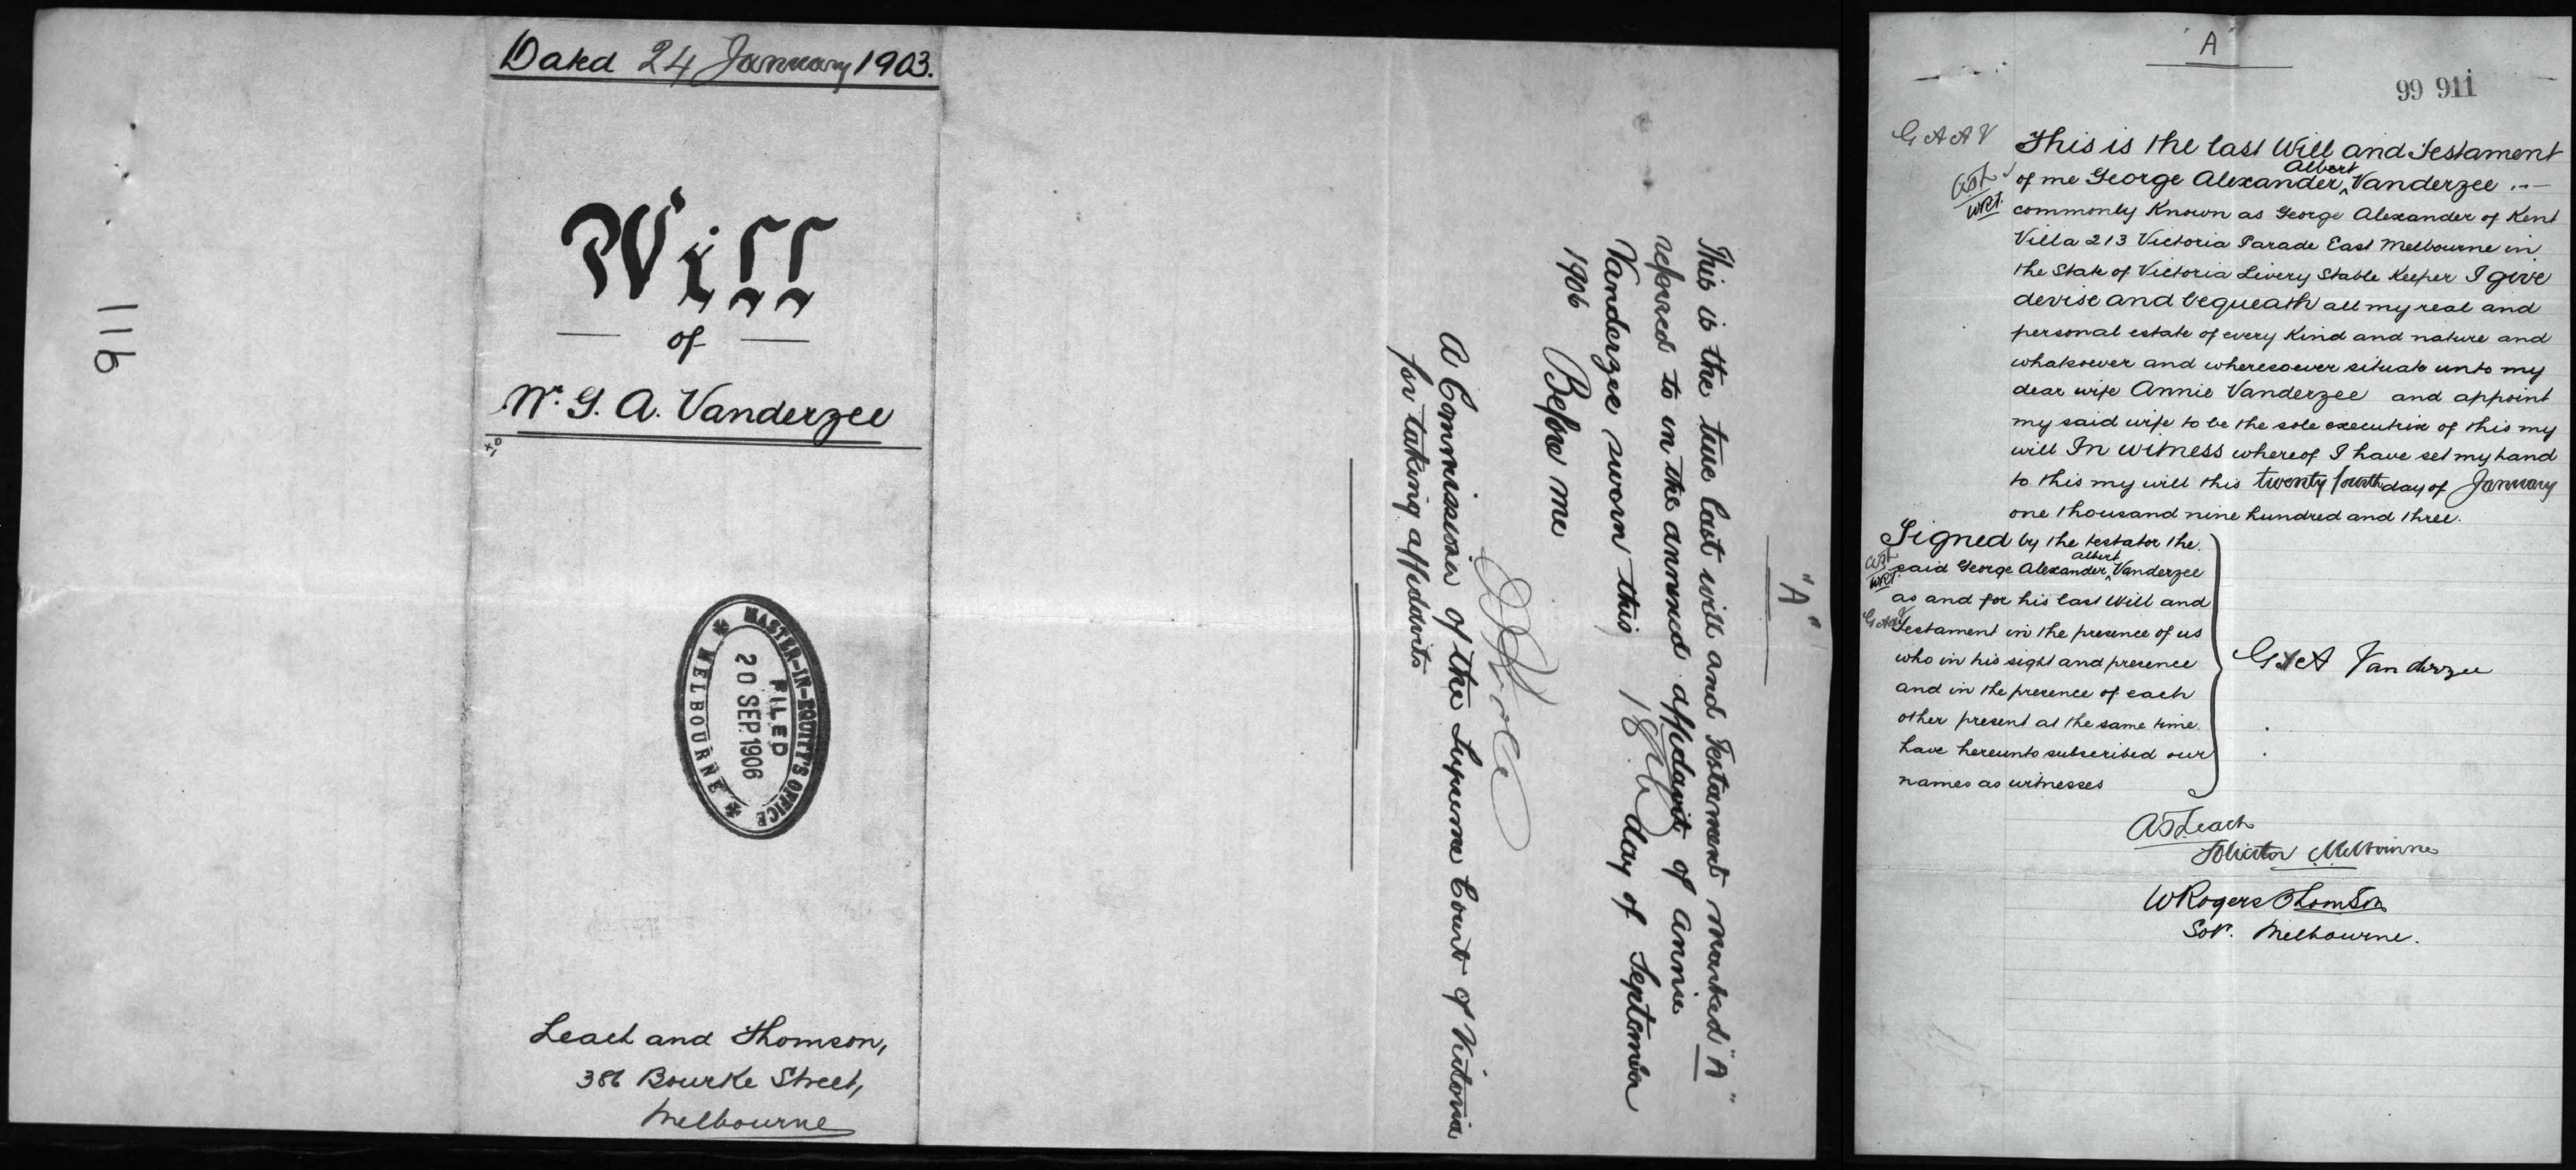 116
Dated 24 January 1903.
Will
of
Mr. G. A. Vanderzee
MASTER-IN-EQUITY'S OFFICE
FILED
20 SEP 1906
MELBOURNE
Leach and Thomson,
386 Bourke Street,
Melbourne
"A"
This is the true last will and Testament marked "A"
referred to in the annexed affidavit of Annie
Vanderzee sworn this 18th day of September
1906
Before me
A Commissioner of the Supreme Court of Victoria
for taking affidavits
"A"
99 911
G A A V This is the last Will and Testament
of me George Alexander Albert Vanderzee
commonly Known as George Alexander of Kent
Villa 213 Victoria Parade East Melbourne in
the State of Victoria Livery Stable Keeper I give
devise and bequeath all my real and
personal estate of every Kind and nature and
whatsoever and wheresoever situate unto my
dear wife Annie Vanderzee and appoint
my said wife to be the sole executrix of this my
will In witness whereof I have set my hand
to this my will this twenty fourth day of January
one thousand nine hundred and three.
Signed by the testator the
said George Alexander Albert Vanderzee
as and for his last Will and
Testament in the presence of us
who in his sight and presence
and in the presence of each
other present at the same time
have hereunto subscribed our
names as witnesses
G A A Vanderzee
A T Leach
Solicitor Melbourne
W Rogers Thomson
Solr. Melbourne.